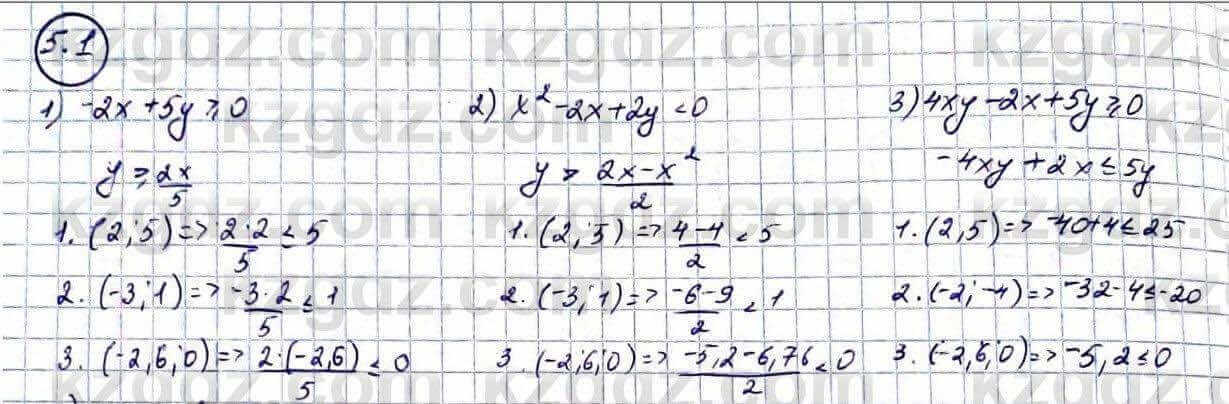 5.1
1) -2x + 5y ≥ 0
y ≥ 2x/5
1. (2; 5) => 2·2/5 ≤ 5
2. (-3; 1) => -3·2/5 ≤ 1
3. (-2,6; 0) => 2·(-2,6)/5 ≤ 0
2) x² - 2x + 2y < 0
y > (2x - x²)/2
1. (2; 5) => (4 - 4)/2 < 5
2. (-3; 1) => (-6 - 9)/2 < 1
3. (-2,6; 0) => (-5,2 - 6,76)/2 < 0
3) 4xy - 2x + 5y ≥ 0
-4xy + 2x ≤ 5y
1. (2,5) => -40 + 4 ≤ 25
2. (-2; -4) => -32 - 4 ≤ -20
3. (-2,6; 0) => -5,2 ≤ 0
kzgdz.com